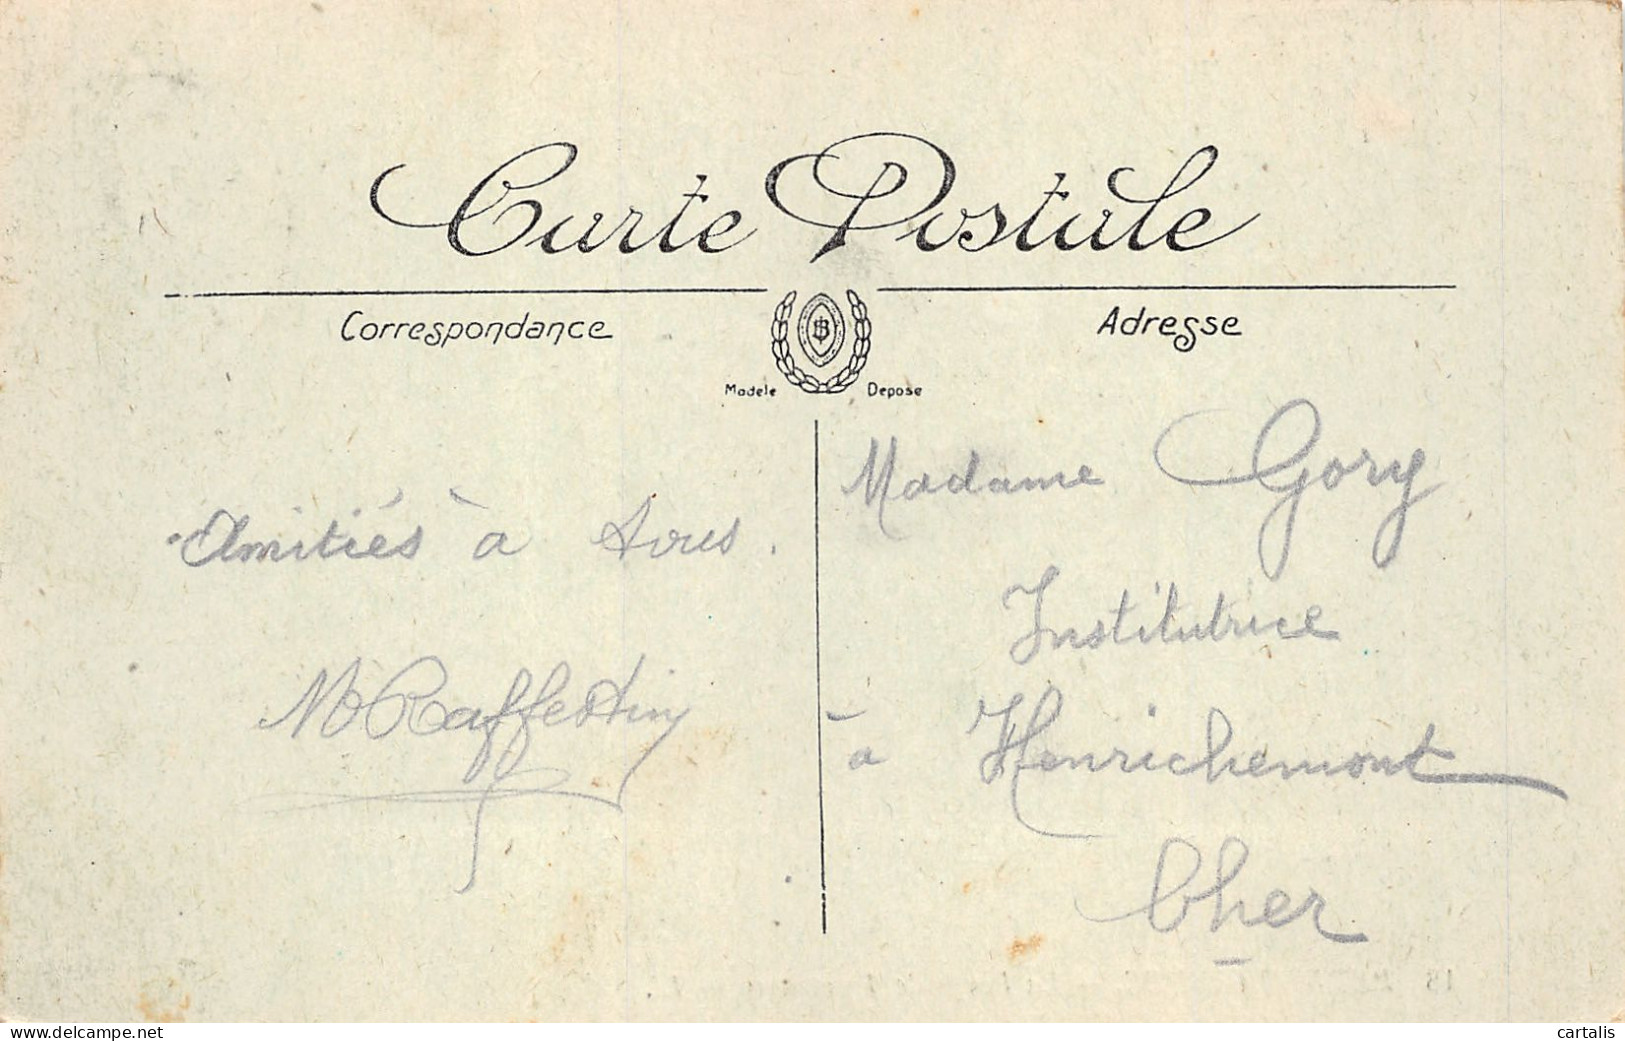 Carte Postale
Correspondance
Adresse
Modele Depose
Amitiés à tous.
Raffestin
Madame Gory
Institutrice
à Henrichemont
Cher
www.delcampe.net
cartalis